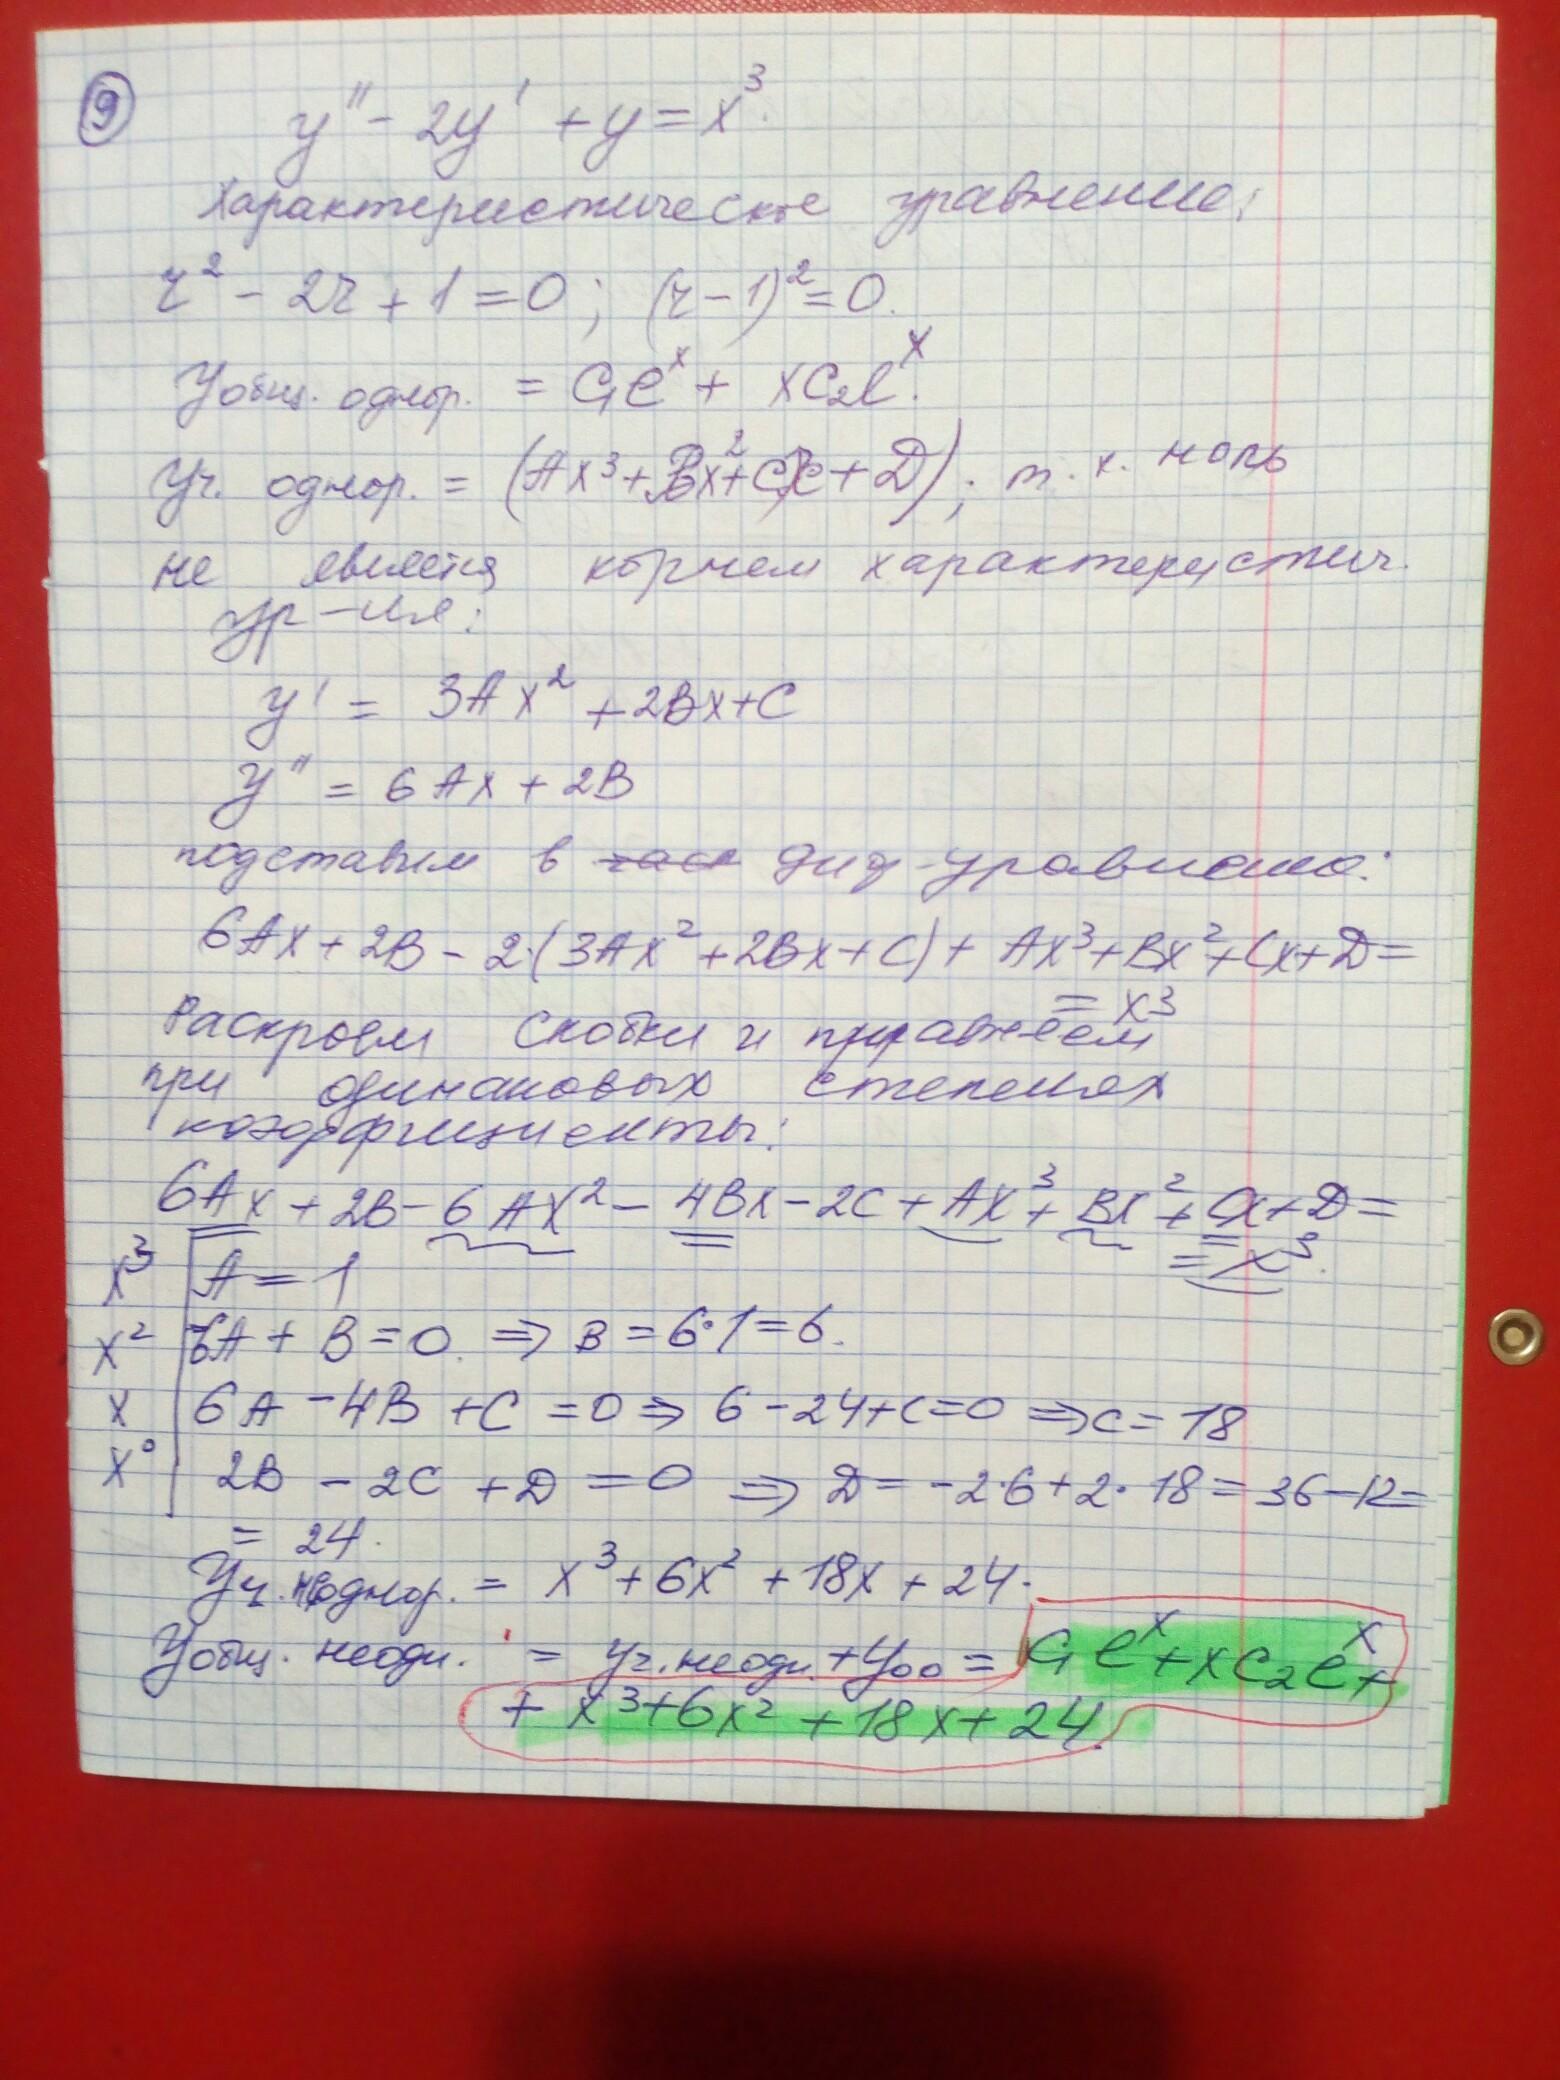 9
y'' - 2y' + y = x³.
Характеристическое уравнение:
r² - 2r + 1 = 0; (r - 1)² = 0.
Yобщ. однор. = C₁eˣ + xC₂eˣ.
Yч. однор. = (Ax³ + Bx² + Cx + D); т. к. ноль
не является корнем характеристич.
ур-ия:
y' = 3Ax² + 2Bx + C
y'' = 6Ax + 2B
подставим в диф-уравнение:
6Ax + 2B - 2·(3Ax² + 2Bx + C) + Ax³ + Bx² + Cx + D =
= x³
Раскроем скобки и приравняем
при одинаковых степенях
коэффициенты:
6Ax + 2B - 6Ax² - 4Bx - 2C + Ax³ + Bx² + Cx + D =
= x³.
x³ | A = 1
x² | -6A + B = 0. ⇒ B = 6·1 = 6.
x | 6A - 4B + C = 0 ⇒ 6 - 24 + C = 0 ⇒ C = 18
x⁰ | 2B - 2C + D = 0 ⇒ D = -2·6 + 2·18 = 36 - 12 =
= 24.
Yч. неоднор. = x³ + 6x² + 18x + 24.
Yобщ. неодн. = Yч. неодн. + Yоо = C₁eˣ + xC₂eˣ +
+ x³ + 6x² + 18x + 24.